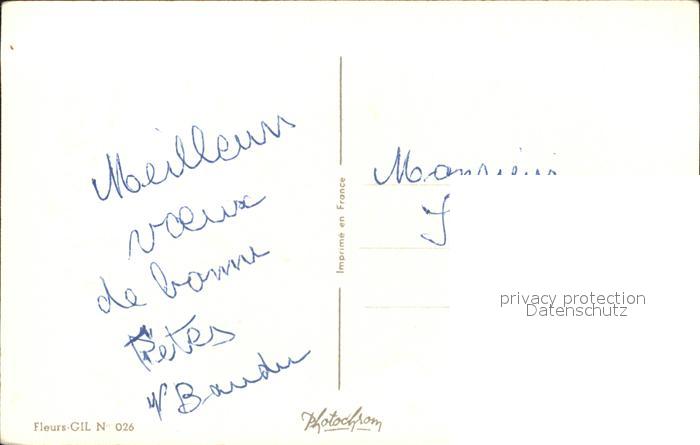 Meilleurs
vœux
de bonne
Fêtes
Baudu
Imprimé en France
Monsieur
J
privacy protection
Datenschutz
Fleurs-GIL N° 026
Photochrom